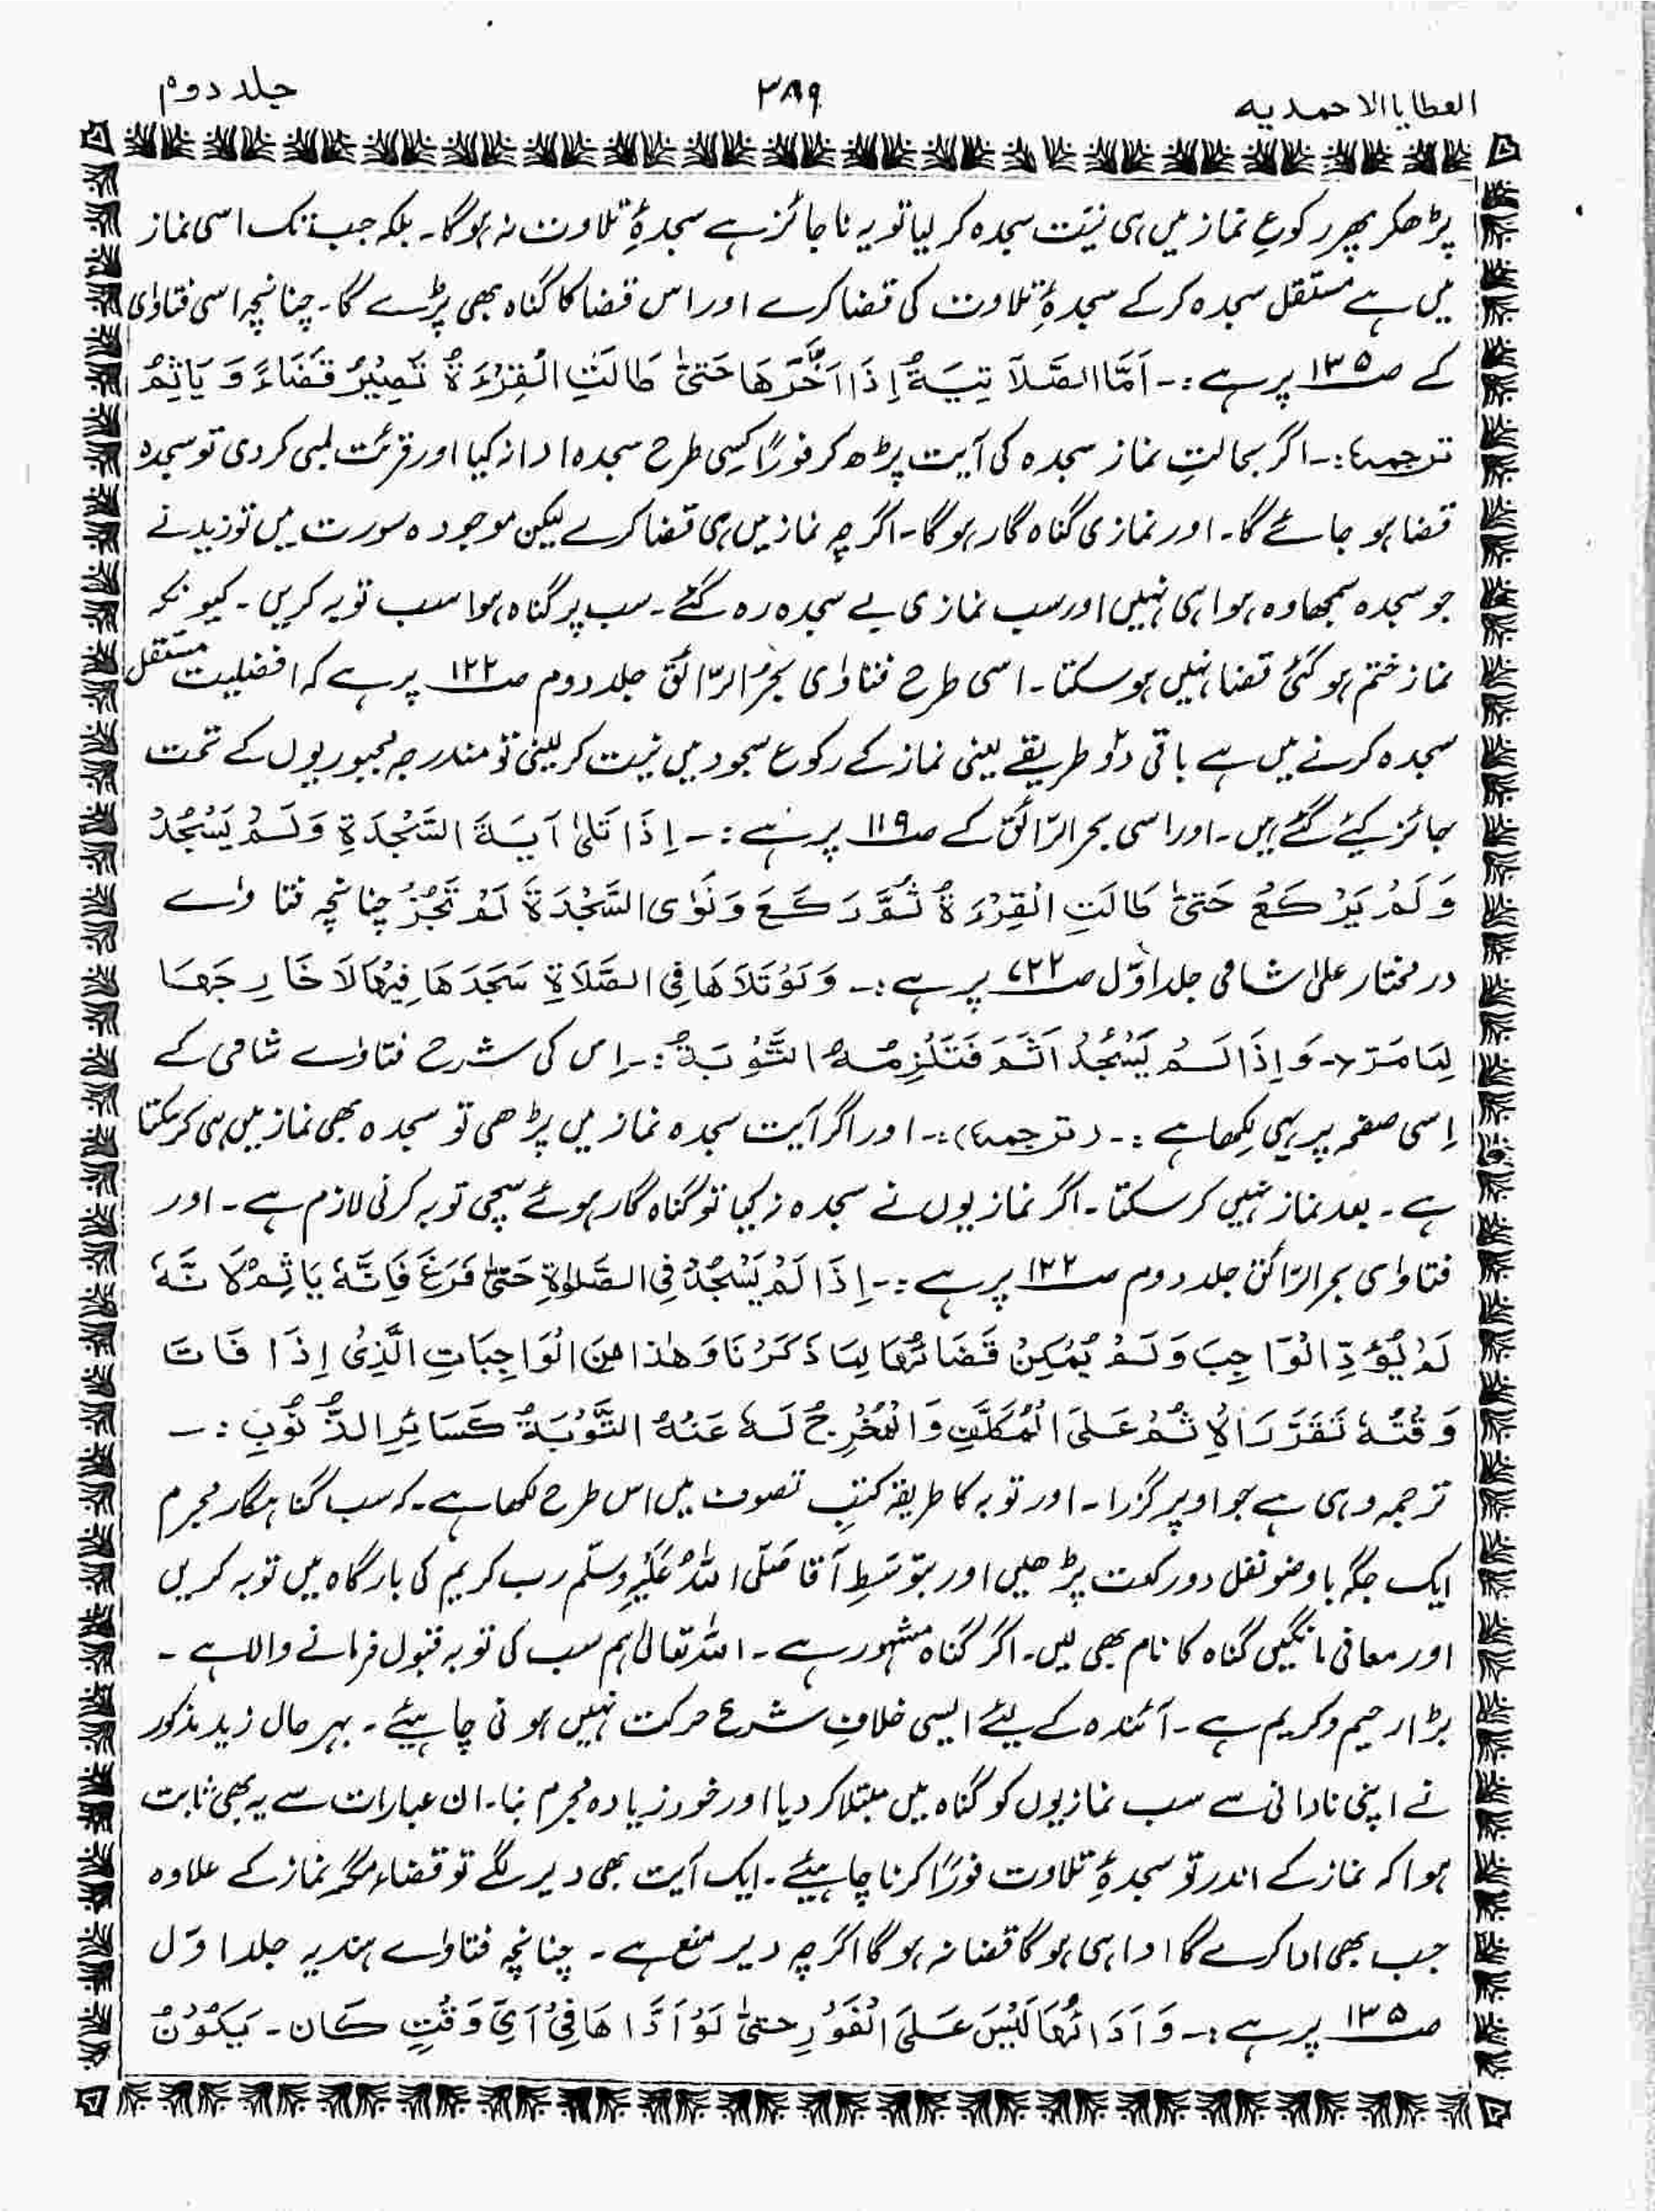 العطایا الاحمدیه ۳۸۹ جلد دوم
پڑھکر پھر رکوعِ نماز میں ہی نیّت سجدہ کر لیا تو یہ ناجائز ہے سجدۂِ تلاوت نہ ہوگا۔ بلکہ جب تک اسی نماز
میں ہے مستقل سجدہ کر کے سجدۂِ تلاوت کی قضا کرے اور اس قضا کا گناہ بھی پڑے گا۔ چنانچہ اسی فتاوٰی
کے صـ۱۳۵ پر ہے :۔ اَمَّا الصَّلَاَ تِیَةُ اِذَا اَخَّرَھَا حَتیّٰ طَالَتِ الْقِرْءَةُ تَصِیْرُ قَضَاءً وَ یَاثِمُ
ترجمہ:۔ اگر بحالتِ نماز سجدہ کی آیت پڑھ کر فورًا کِسی طرح سجدہ ادا نہ کیا اور قرئت لمبی کر دی تو سجدہ
قضا ہو جائے گا۔ اور نمازی گناہ گار ہوگا۔ اگرچہ نماز میں ہی قضا کرے لیکن موجودہ صورت میں تو زید نے
جو سجدہ سمجھا وہ ہوا ہی نہیں اور سب نمازی بے سجدہ رہ گئے۔ سب پر گناہ ہوا سب توبہ کریں۔ کیونکہ
نماز ختم ہو گئی قضا نہیں ہو سکتا۔ اسی طرح فتاوٰی بحرُ الرّائق جلد دوم صـ۱۲۲ پر ہے کہ افضلیت مستقل
سجدہ کرنے میں ہے باقی دٗو طریقے یعنی نماز کے رکوع سجود میں نیت کر لینی تو مندرجہ مجبوریوں کے تحت
جائز کیئے گئے ہیں۔ اور اسی بحر الرّائق کے صـ۱۱۹ پر ہے :۔ اِذَا تَلیٰ آیَةَ السَّجْدَةِ وَلَمْ یَسْجُدْ
وَلَمْ یَرْکَعْ حَتیّٰ طَالَتِ الْقِرْءَةُ ثُمَّ رَکَعَ وَنَوٰی السَّجْدَةَ لَمْ تَجُزْ چنانچہ فتاوٰے
در مختار علیٰ شامی جلد اوّل صـ۷۲۲ پر ہے :۔ وَلَوْ تَلَاَھَا فِی الصَّلَاَةِ سَجَدَھَا فِیْھَا لَا خَارِجَھَا
لِمَا مَرَّ۔ وَاِذَا لَمْ یَسْجُدْ اَثَمَ فَتَلْزِمُہُ التَّوْبَةُ :۔ اِس کی شرح فتاوٰے شامی کے
اِسی صفحہ پر یہی لِکھا ہے :۔ (ترجمہ):۔ اور اگر آیت سجدہ نماز میں پڑھی تو سجدہ بھی نماز میں ہی کر سکتا
ہے۔ بعد نماز نہیں کر سکتا۔ اگر نمازیوں نے سجدہ نہ کیا تو گناہ گار ہوئے سچی توبہ کرنی لازم ہے۔ اور
فتاوٰی بحر الرّائق جلد دوم صـ۱۲۲ پر ہے :۔ اِذَا لَمْ یَسْجُدْ فِی الصَّلٰوةِ حَتیّٰ فَرَغَ فَاِنَّہٗ یَاثِمُ لِاَنَّہٗ
لَمْ یُؤَدِّ الْوَاجِبَ وَلَمْ یُمْکِنْ قَضَائُھَا لِمَا ذَکَرْنَا وَھٰذَا مِنَ الْوَاجِبَاتِ الَّذِیْ اِذَا فَاتَ
وَقْتُہٗ تَقَرَّرَ الْاِثْمُ عَلَی الْمُکَلَّفِ وَالْمُخْرِجُ لَہٗ عَنْہُ التَّوْبَةُ کَسَائِرِ الذُّنُوْبِ :۔
ترجمہ وہی ہے جو اوپر گزرا۔ اور توبہ کا طریقہ کتبِ تصوف میں اس طرح لکھا ہے۔ کہ سب گناہگار مجرم
ایک جگہ باوضو نفل دو رکعت پڑھیں اور بتوسّطِ آقا صَلَّی اللّٰہُ عَلَیْہِ وسلّم رب کریم کی بارگاہ میں توبہ کریں
اور معافی مانگیں گناہ کا نام بھی لیں۔ اگر گناہ مشہور ہے۔ اللہ تعالیٰ ہم سب کی توبہ قبول فرمانے والا ہے۔
بڑا رحیم و کریم ہے۔ آئندہ کے لیئے ایسی خلافِ شرع حرکت نہیں ہونی چاہیئے۔ بہر حال زید مذکور
نے اپنی نادانی سے سب نمازیوں کو گناہ میں مبتلا کر دیا اور خود زیادہ مجرم بنا۔ ان عبارات سے یہ بھی ثابت
ہوا کہ نماز کے اندر تو سجدۂِ تلاوت فورًا کرنا چاہیئے۔ ایک آیت بھی دیر لگے تو قضاء مگر نماز کے علاوہ
جب بھی ادا کرے گا ادا ہی ہوگا قضا نہ ہوگا اگرچہ دیر منع ہے۔ چنانچہ فتاوٰے ہندیہ جلد اوّل
صـ۱۳۵ پر ہے :۔ وَاَدَائُھَا لَیْسَ عَلَی الْفَوْرِ حتیّٰ لَوْ اَدَّاھَا فِیْ اَیِّ وَقْتٍ کَان۔ یَکُوْنُ